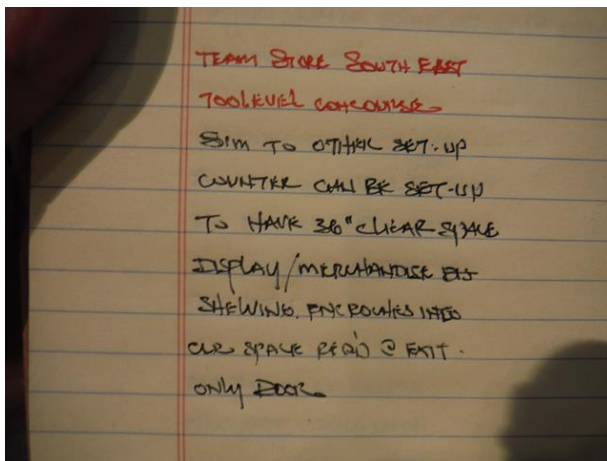 TEAM STORE SOUTH EAST
700 LEVEL CONCOURSE
SIM TO OTHER SET-UP
COUNTER CAN BE SET-UP
TO HAVE 36" CLEAR SPACE
DISPLAY/MERCHANDISE
SHELVING. ENCROCHES INTO
CLR SPACE REQ'D @ EXIT.
ONLY DOOR